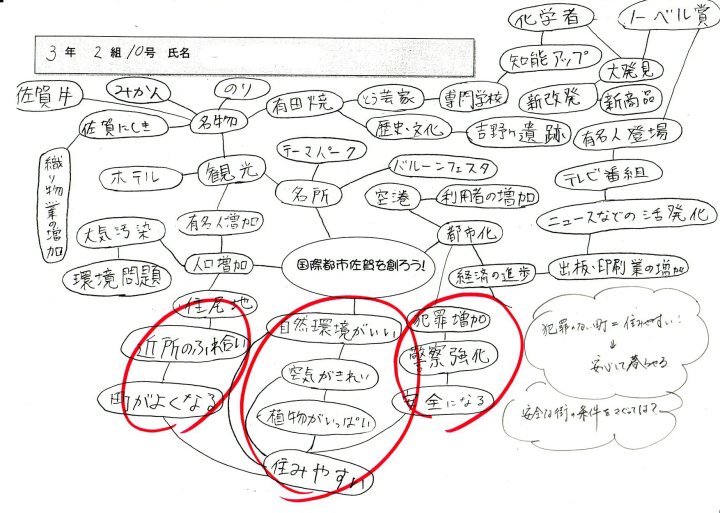 化学者
ノーベル賞
3年 2組 10号 氏名
知能アップ
大発見
佐賀牛
みかん
のり
有田焼
とう芸家
専門学校
新改発
新商品
佐賀にしき
名物
歴史・文化
吉野ヶ遺跡
有名人登場
織り物業の増加
テーマパーク
バルーンフェスタ
テレビ番組
ホテル
観光
名所
空港
利用者の増加
ニュースなどの活発化
有名人増加
都市化
大気汚染
環境問題
人口増加
国際都市佐賀を創ろう!
経済の進歩
出板・印刷業の増加
住居地
自然環境がいい
犯罪増加
犯罪のない町=住みやすい!
↓
安心して暮らせる
近所のふれ合い
空気がきれい
警察強化
町がよくなる
植物がいっぱい
安全になる
安全は街の条件
住みやすい